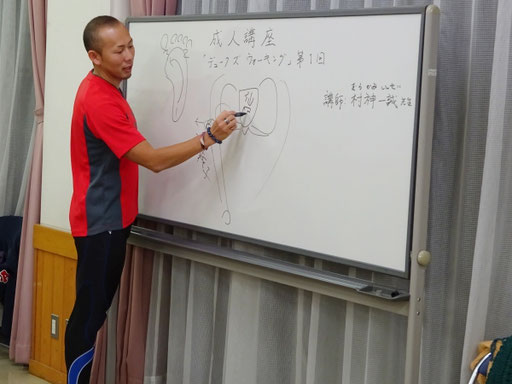 成人講座
「デュークズ ウォーキング」第1回
むらかみ いっせい
講師 村神一誠 先生